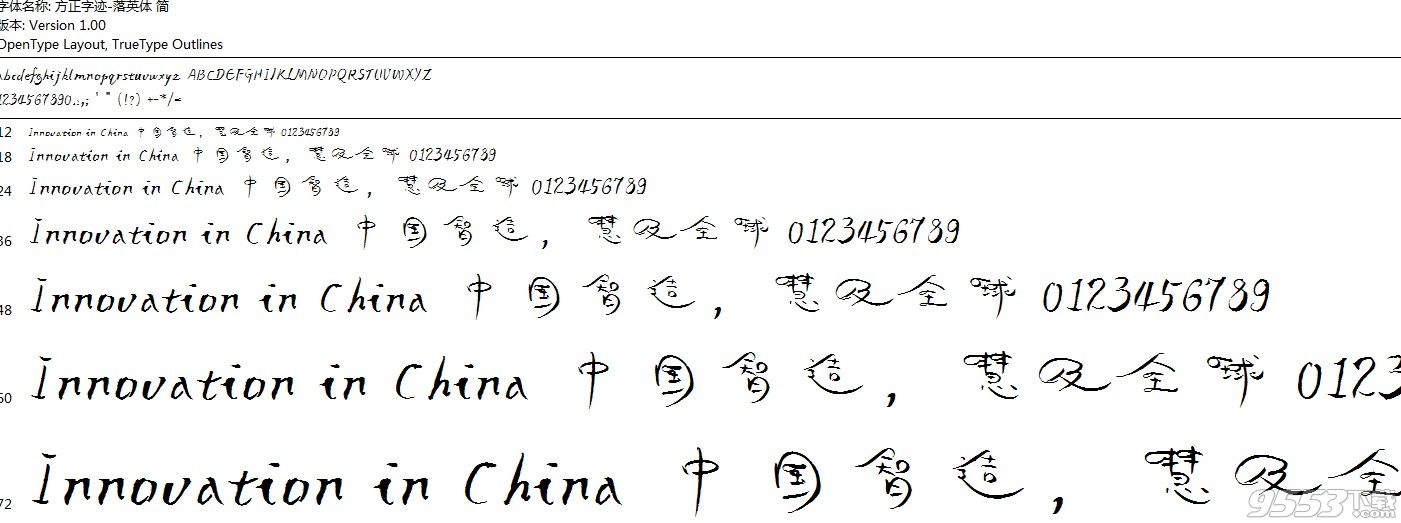 字体名称: 方正字迹-落英体 简
版本: Version 1.00
OpenType Layout, TrueType Outlines
abcdefghijklmnopqrstuvwxyz ABCDEFGHIJKLMNOPQRSTUVWXYZ
1234567890.:,; ' " (!?) +-*/=
12 Innovation in China 中国智造，慧及全球 0123456789
18 Innovation in China 中国智造，慧及全球 0123456789
24 Innovation in China 中国智造，慧及全球 0123456789
36 Innovation in China 中国智造，慧及全球 0123456789
48 Innovation in China 中国智造，慧及全球 0123456789
60 Innovation in China 中国智造，慧及全球 0123
72 Innovation in China 中国智造，慧及全
9553下载
.com